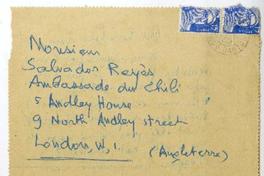 Monsieur
Salvador Reyès
Ambassade du Chili
5 Audley House
9 North Audley street
London, W. 1.
(Angleterre)